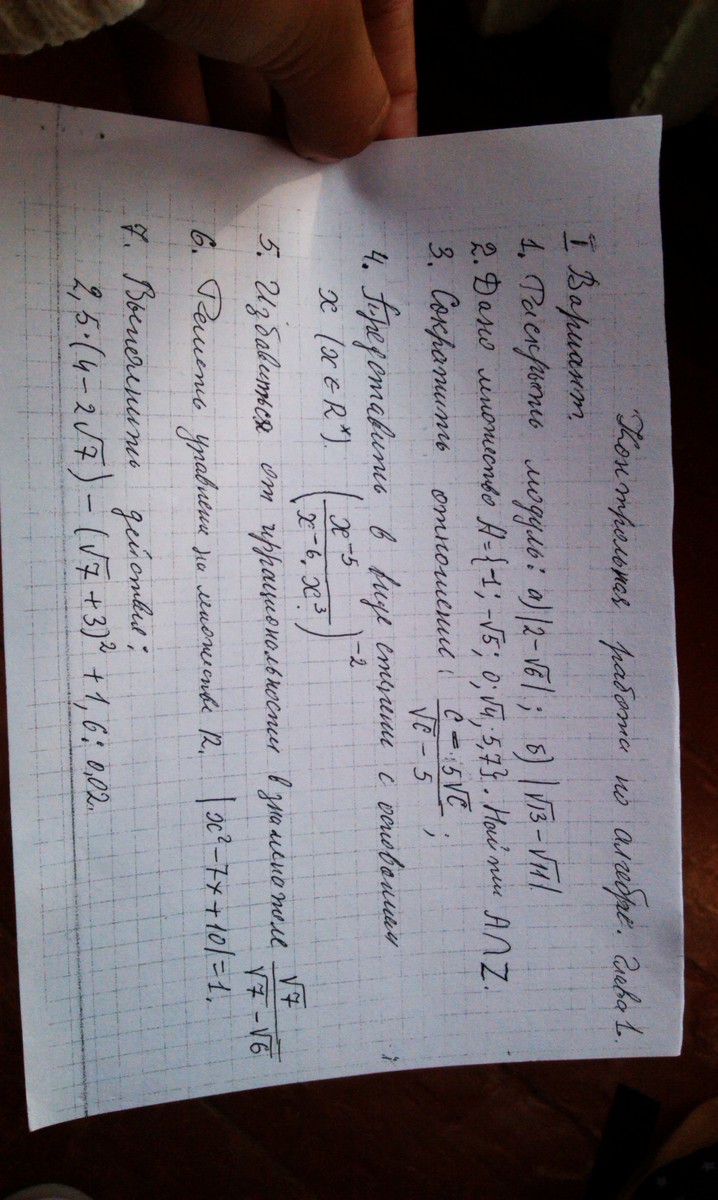 Контрольная работа по алгебре. Глава 1.
I Вариант.
1. Раскрыть модуль: а) |2-√6|; б) |√3-√11|
2. Дано множество A={-1; -√5; 0; √4; 5,7}. Найти A∩Z.
3. Сократить отношение: (c = 5√c)/(√c - 5);
4. Представить в виде степени с основанием
x (x∈R*). (x⁻⁵/(x⁻⁶·x³))⁻²
5. Избавиться от иррациональности в знаменателе √7/(√7-√6)
6. Решить уравнение на множестве R. |x²-7x+10|=1.
7. Выполнить действия:
2,5·(4-2√7)-(√7+3)²+1,6:0,02.